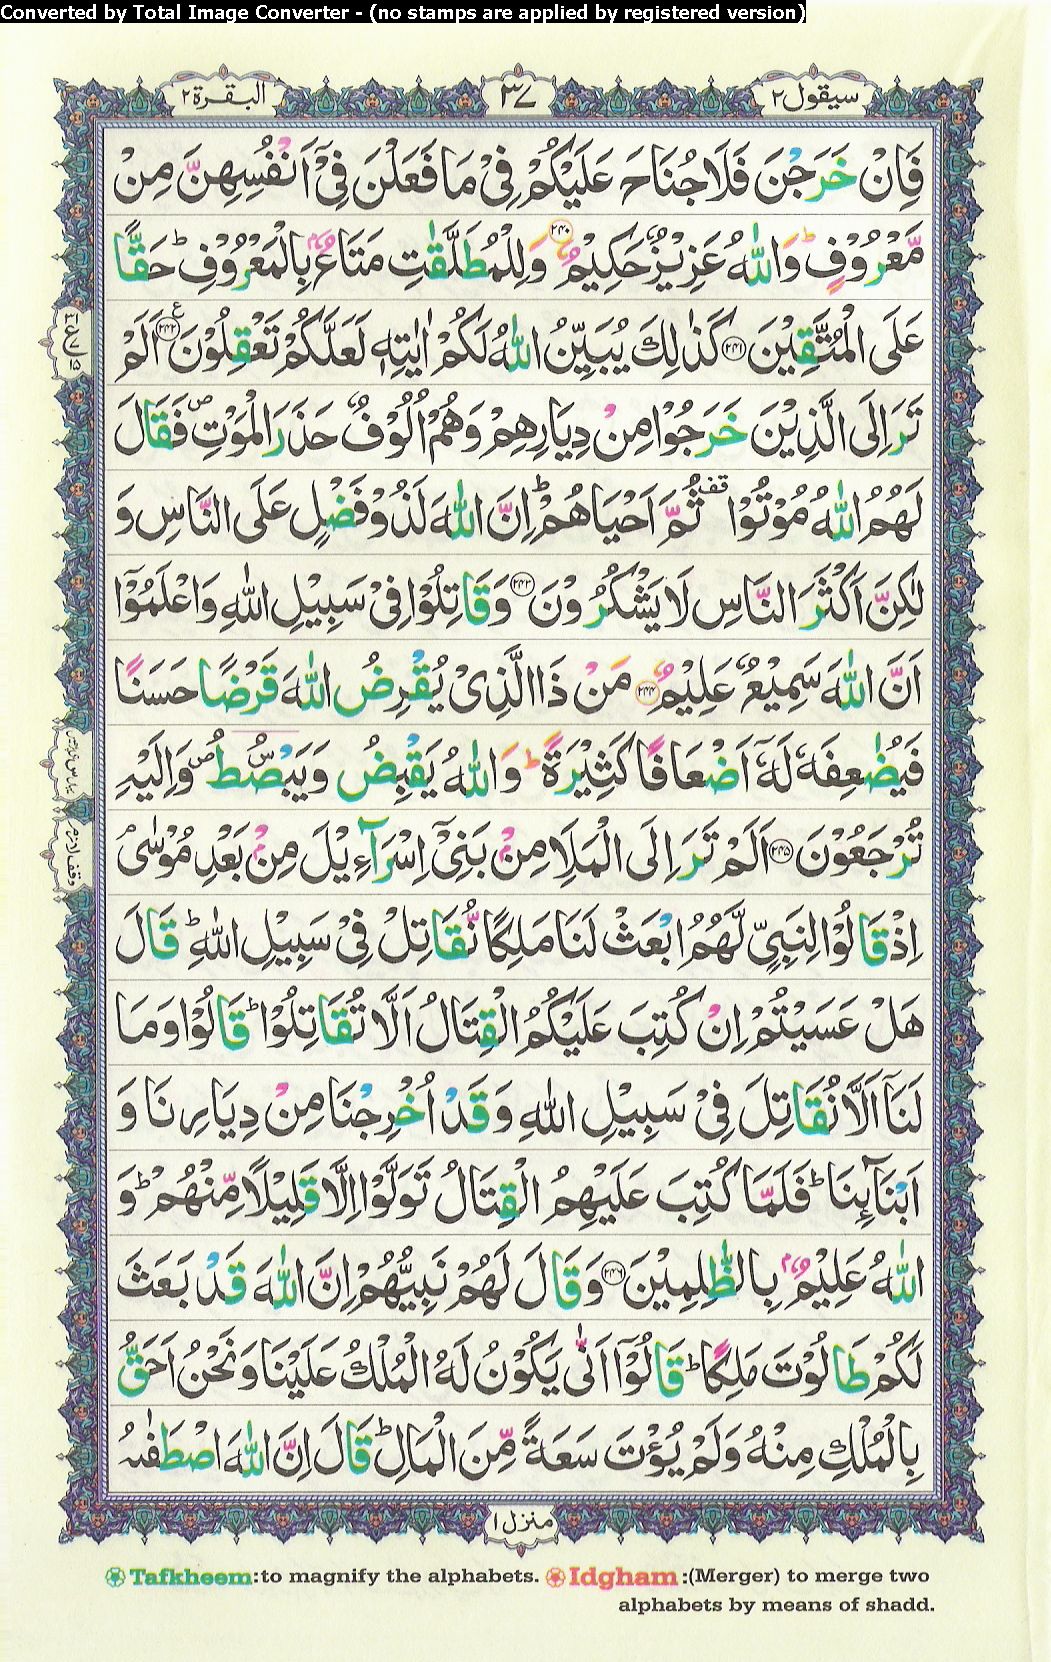 Converted by Total Image Converter - (no stamps are applied by registered version)
سيقول٢ ٣٧ البقرة٢
فَاِنْ خَرَجْنَ فَلَا جُنَاحَ عَلَيْكُمْ فِىْ مَا فَعَلْنَ فِىْٓ اَنْفُسِهِنَّ مِنْ
مَّعْرُوْفٍ ؕ وَاللّٰهُ عَزِيْزٌ حَكِيْمٌ ﴿۲۴۰﴾ وَلِلْمُطَلَّقٰتِ مَتَاعٌۢ بِالْمَعْرُوْفِ ؕ حَقًّا
عَلَى الْمُتَّقِيْنَ ﴿۲۴۱﴾ كَذٰلِكَ يُبَيِّنُ اللّٰهُ لَكُمْ اٰيٰتِهٖ لَعَلَّكُمْ تَعْقِلُوْنَ ﴿۲۴۲﴾ ع اَلَمْ
تَرَ اِلَى الَّذِيْنَ خَرَجُوْا مِنْ دِيَارِهِمْ وَهُمْ اُلُوْفٌ حَذَرَ الْمَوْتِ ص فَقَالَ
لَهُمُ اللّٰهُ مُوْتُوْا قف ثُمَّ اَحْيَاهُمْ ؕ اِنَّ اللّٰهَ لَذُوْ فَضْلٍ عَلَى النَّاسِ وَ
لٰكِنَّ اَكْثَرَ النَّاسِ لَا يَشْكُرُوْنَ ﴿۲۴۳﴾ وَقَاتِلُوْا فِىْ سَبِيْلِ اللّٰهِ وَاعْلَمُوْٓا
اَنَّ اللّٰهَ سَمِيْعٌ عَلِيْمٌ ﴿۲۴۴﴾ مَنْ ذَا الَّذِىْ يُقْرِضُ اللّٰهَ قَرْضًا حَسَنًا
فَيُضٰعِفَهٗ لَهٗٓ اَضْعَافًا كَثِيْرَةً ؕ وَاللّٰهُ يَقْبِضُ وَيَبْصُۜطُ ص وَاِلَيْهِ
تُرْجَعُوْنَ ﴿۲۴۵﴾ اَلَمْ تَرَ اِلَى الْمَلَاِ مِنْۢ بَنِىْٓ اِسْرَآءِيْلَ مِنْۢ بَعْدِ مُوْسٰى ۘ
اِذْ قَالُوْا لِنَبِىٍّ لَّهُمُ ابْعَثْ لَنَا مَلِكًا نُّقَاتِلْ فِىْ سَبِيْلِ اللّٰهِ ؕ قَالَ
هَلْ عَسَيْتُمْ اِنْ كُتِبَ عَلَيْكُمُ الْقِتَالُ اَلَّا تُقَاتِلُوْا ؕ قَالُوْا وَمَا
لَنَآ اَلَّا نُقَاتِلَ فِىْ سَبِيْلِ اللّٰهِ وَقَدْ اُخْرِجْنَا مِنْ دِيَارِنَا وَ
اَبْنَآئِنَا ؕ فَلَمَّا كُتِبَ عَلَيْهِمُ الْقِتَالُ تَوَلَّوْا اِلَّا قَلِيْلًا مِّنْهُمْ ؕ وَ
اللّٰهُ عَلِيْمٌۢ بِالظّٰلِمِيْنَ ﴿۲۴۶﴾ وَقَالَ لَهُمْ نَبِيُّهُمْ اِنَّ اللّٰهَ قَدْ بَعَثَ
لَكُمْ طَالُوْتَ مَلِكًا ؕ قَالُوْٓا اَنّٰى يَكُوْنُ لَهُ الْمُلْكُ عَلَيْنَا وَنَحْنُ اَحَقُّ
بِالْمُلْكِ مِنْهُ وَلَمْ يُؤْتَ سَعَةً مِّنَ الْمَالِ ؕ قَالَ اِنَّ اللّٰهَ اصْطَفٰىهُ
منزل ١
Tafkheem:to magnify the alphabets. Idgham:(Merger) to merge two
alphabets by means of shadd.